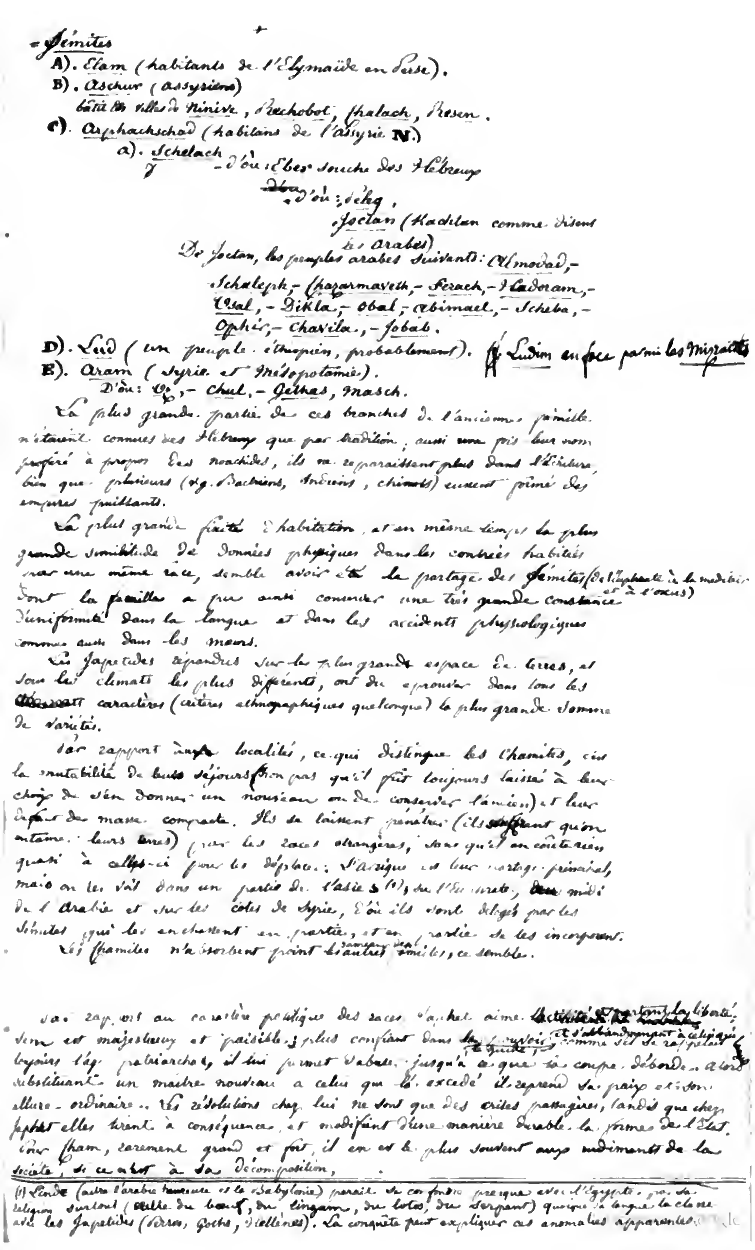 = Sémites
A). Elam (habitants de l'Elymaïde en Perse).
B). Aschur (assyriens)
bâtit les villes de Ninive, Rechobot, Chalach, Resen.
C). Arphachschad (habitans de l'assyrie N.)
a). Schelach
d'où : Eber souche des Hébreux
d'où : Péleg.
Joctan (Kachtan comme disent
les arabes)
De Joctan, les peuples arabes suivants : Almodad, -
Schaleph, - Chazarmaveth, - Jerach, - Hadoram, -
Usal, - Dikla, - Obal, - abimael, - Scheba, -
Ophir, - Chavila, - Jobab.
D). Lud (un peuple éthiopien, probablement). Ludim en face parmi les Mizraïtes
E). Aram (Syrie et Mésopotamie).
D'où : Uz, - Chul, - Gethas, Masch.
La plus grande partie de ces branches de l'ancienne famille
n'étaient connues des Hébreux que par tradition ; aussi une fois leur nom
proféré à propos des noachides, ils ne reparaissent plus dans l'Ecriture,
bien que plusieurs (v.g. Bactriens, Indiens, chinois) eussent formé des
empires puissants.
La plus grande fixité d'habitation, et en même temps la plus
grande similitude de données physiques dans les contrées habitées
par une même race, semble avoir été le partage des Sémites (de l'Euphrate à la mediter
et à l'oxus)
dont la famille a pu ainsi conserver une très grande constance
d'uniformité dans la langue et dans les accidents physiologiques
comme aussi dans les mœurs.
Les Japetides répandus sur le plus grand espace de terres, et
sous les climats les plus différents, ont du eprouver dans tous les
caractères (critères ethnographiques quelconque) la plus grande somme
de variétés.
Par rapport aux localités, ce qui distingue les Chamites, c'est
la mutabilité de leurs séjours (non pas qu'il fût toujours laissé à leur
choix de s'en donner un nouveau ou de conserver l'ancien) et leur
défaut de masse compacte. Ils se laissent pénétrer (ils souffrent qu'on
entame leurs terres) par les races étrangères, sans qu'il en coûte rien
quasi à celles-ci pour les déplacer. L'Afrique est leur partage principal,
mais on les voit dans une partie de l'asie S (1), sur l'Euphrate, au midi
de l'Arabie et sur les cotes de Syrie, d'où ils sont délogés par les
Sémites, qui les en chassent en partie, et en partie se les incorporent.
Les Chamites n'absorbent point les autres familles, ce semble.
Par rapport au caractère politique des races, Japhet aime la liberté ;
Sem est majestueux et paisible ; plus confiant dans le pouvoir, et s'abbandonnant à celui qui
le guide, comme s'il se rappelait
toujours l'âge patriarchal, il lui permet d'abuser jusqu'à ce que la coupe déborde. alors
substituant un maitre nouveau à celui qui l'a excédé il reprend sa paix et son
allure ordinaire.. Les révolutions chez lui ne sont que des crises passagères, tandis que chez
Japhet elles tirent à conséquence, et modifient d'une manière durable la forme de l'Etat.
Pour Cham, rarement grand et fort, il en est le plus souvent aux rudiments de la
société, si ce n'est à sa décomposition.
(1) L'Inde (outre l'arabie heureuse et la Babylonie) parait se confondre presque avec l'Egypte par sa
religion surtout (culte du bœuf, du lingam, du lotos, du serpent) quoique sa langue la classe
avec les Japetides (Perses, Goths, Hellènes). La conquête peut expliquer ces anomalies apparentes.